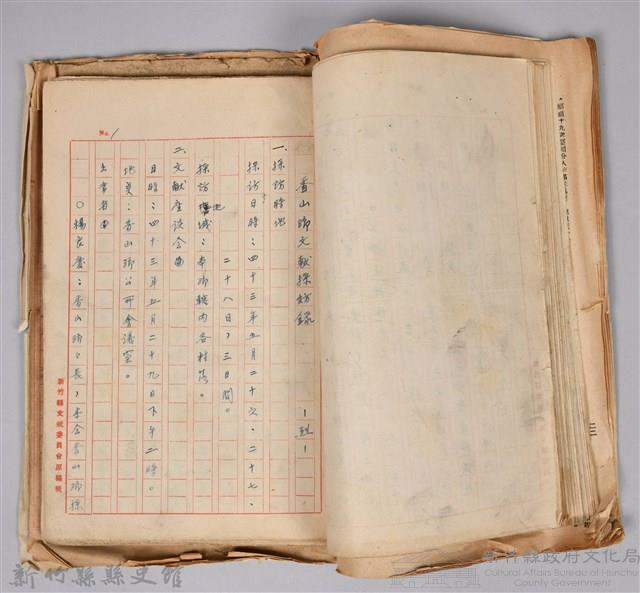 No. 1
香山鄉文獻採訪錄
一、採訪時地
採訪日時：四十三年五月二十六、二十七、
二十八日，三日間。
採訪地域：本鄉轄内各村落。
二、文獻座談会
日時：四十三年五月二十九日下午二時。
地奌：香山鄉公所會議室。
出席者名
○楊良慶：香山鄉々長，本会香山鄉採
新竹縣文獻委員會原稿紙
三
新竹縣縣史館
新竹縣政府文化局
Cultural Affairs Bureau of Hsinchu
County Government